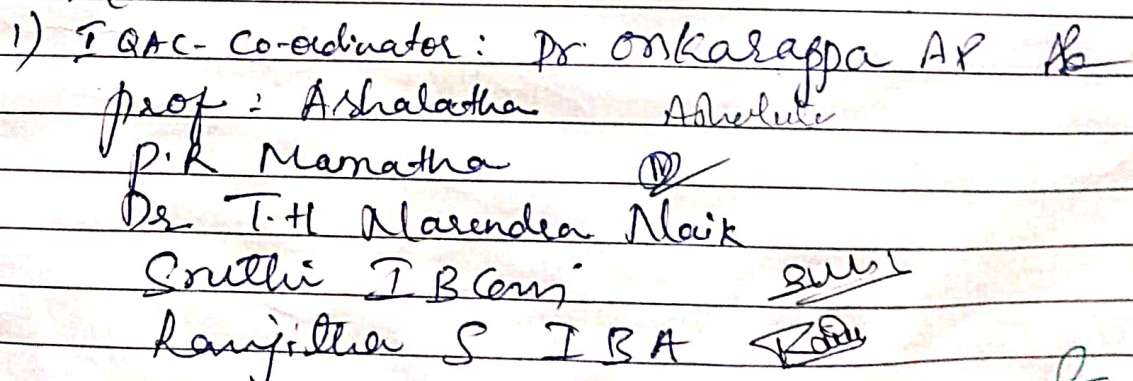 1) IQAC- Co-ordinator: Dr. Onkarappa AP
prof: Ashalatha
P.R Mamatha
Dr T.H Narendra Naik
Sruthi I B Com
Ranjitha S I BA